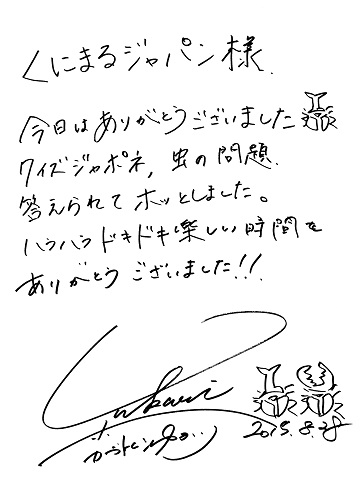 くにまるジャパン様
今日はありがとうございました
クイズジャポネ,虫の問題
答えられてホッとしました。
ハラハラドキドキ楽しい時間を
ありがとうございました!!
2015.8.28